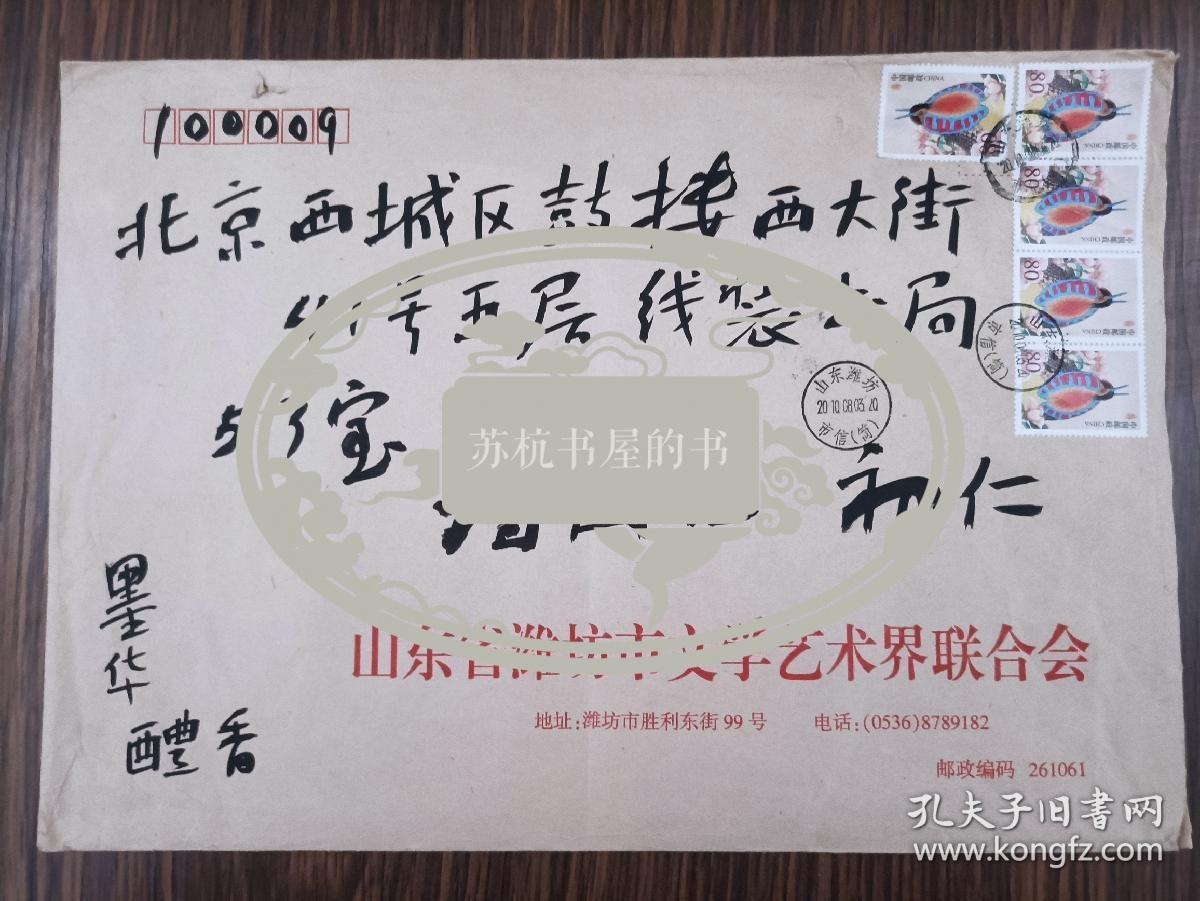 100009
北京西城区鼓楼西大街
41号五层 线装书局
513室
初仁
墨华
醴香
苏杭书屋的书
山东省潍坊市文学艺术界联合会
地址:潍坊市胜利东街 99 号 电话:(0536)8789182
邮政编码 261061
山东潍坊
2010.08.03.20
市信(筒)
中国邮政 CHINA
80
中国邮政 CHINA
80
中国邮政 CHINA
80
中国邮政 CHINA
80
中国邮政 CHINA
孔夫子旧书网
www.kongfz.com